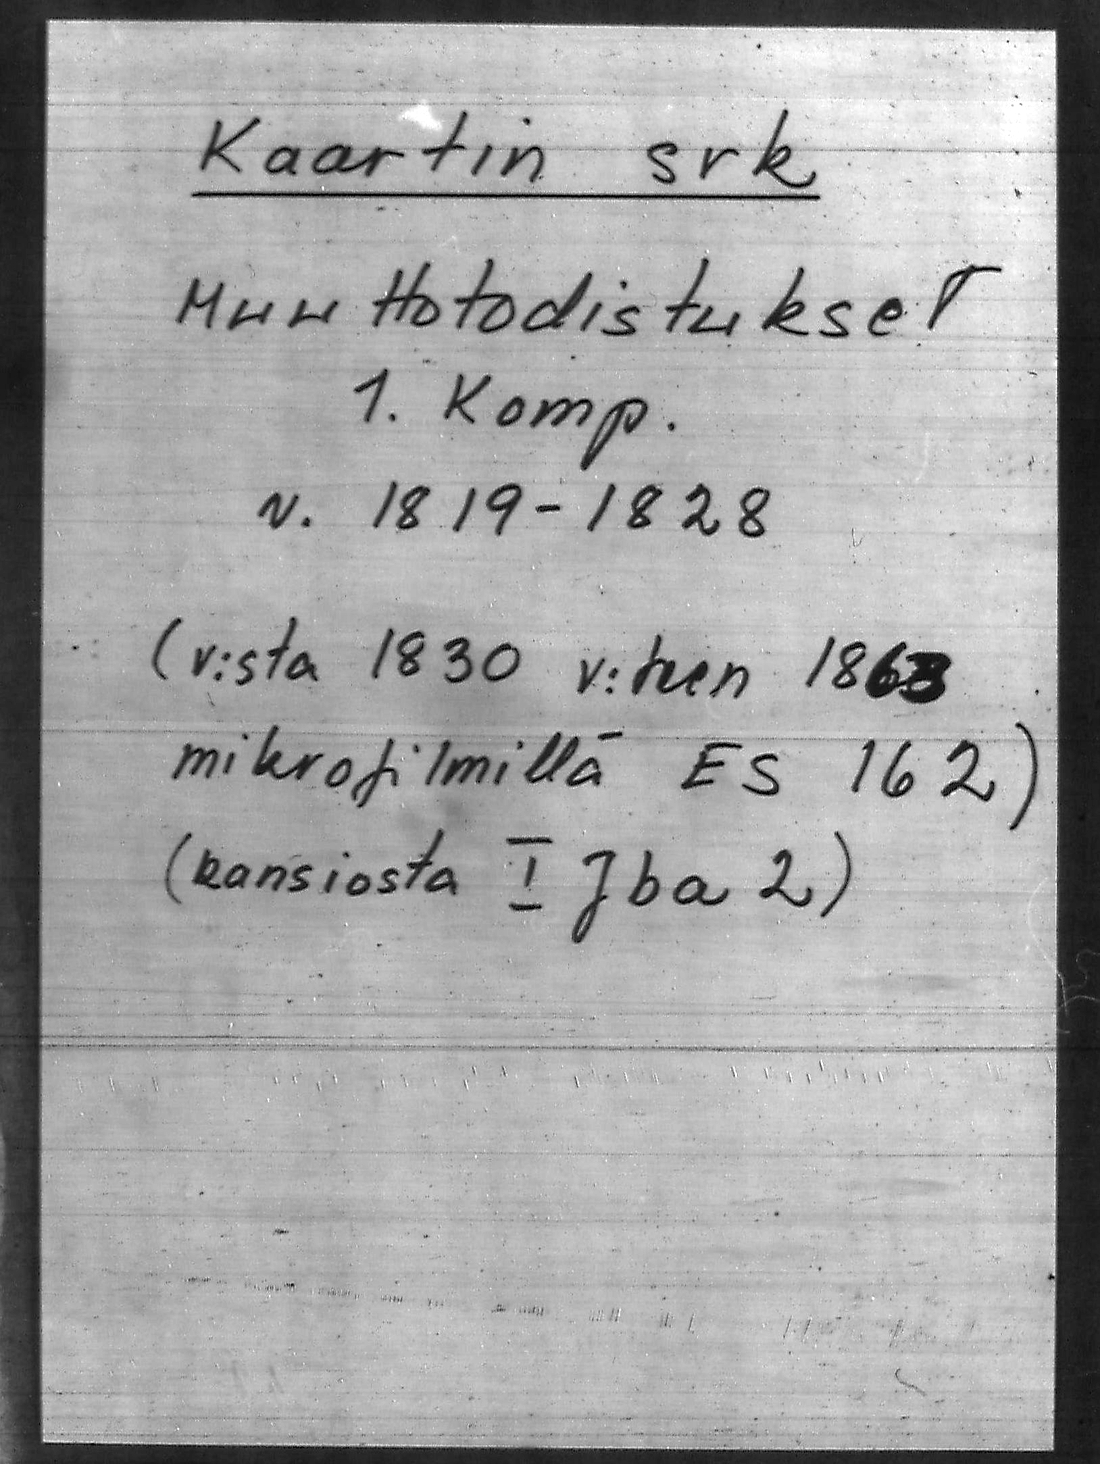 Kaartin srk
Muuttotodistukset
1. Komp.
v. 1819-1828
(v:sta 1830 v:teen 1863
mikrofilmillä ES 162)
(kansiosta I Jba 2)